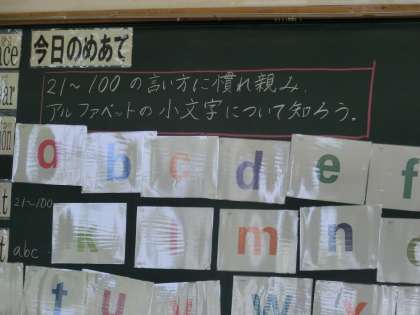 今日のめあて
21～100の言い方に慣れ親み、
アルファベットの小文字について知ろう。
a b c d e f
21～100
k l m n o
abc
t u v w x y